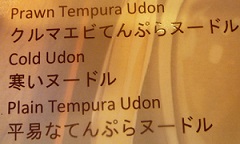 Prawn Tempura Udon
クルマエビてんぷらヌードル
Cold Udon
寒いヌードル
Plain Tempura Udon
平易なてんぷらヌードル